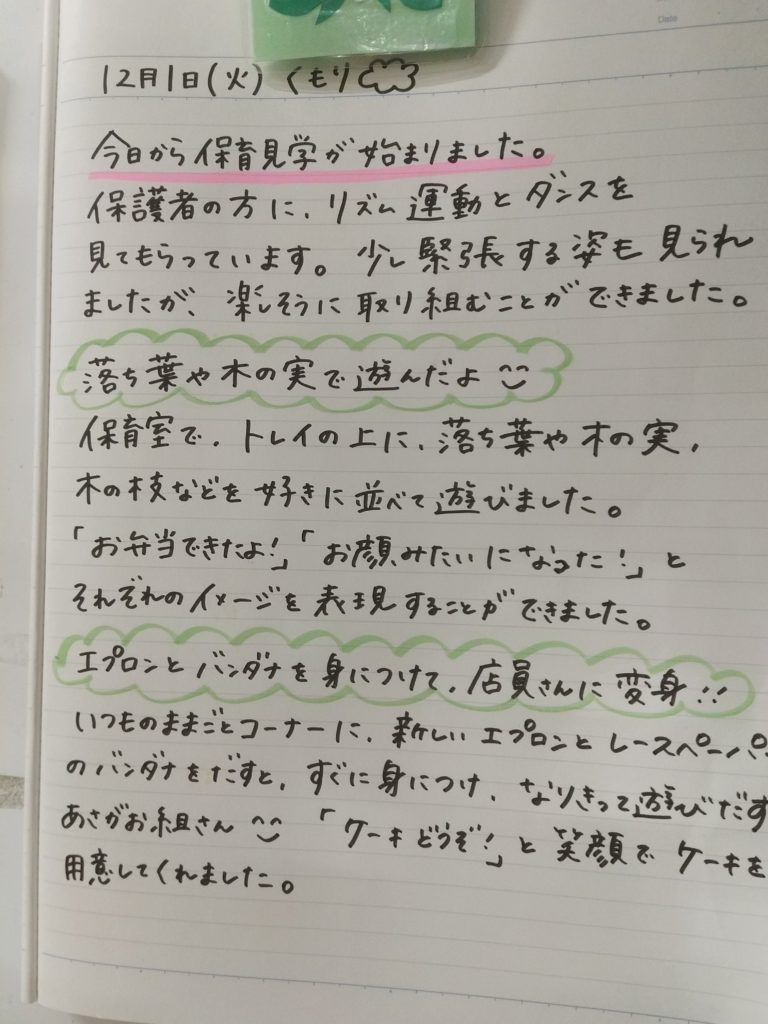 Date
12月1日(火) くもり
今日から保育見学が始まりました。
保護者の方に、リズム運動とダンスを
見てもらっています。少し緊張する姿も見られ
ましたが、楽しそうに取り組むことができました。
落ち葉や木の実で遊んだよ
保育室で、トレイの上に、落ち葉や木の実、
木の枝などを好きに並べて遊びました。
「お弁当できたよ!」「お顔みたいになった!」と
それぞれのイメージを表現することができました。
エプロンとバンダナを身につけて、店員さんに変身!!
いつものままごとコーナーに、新しいエプロンとレースペーパー
のバンダナをだすと、すぐに身につけ、なりきって遊びだす
あさがお組さん 「ケーキどうぞ!」と笑顔でケーキを
用意してくれました。